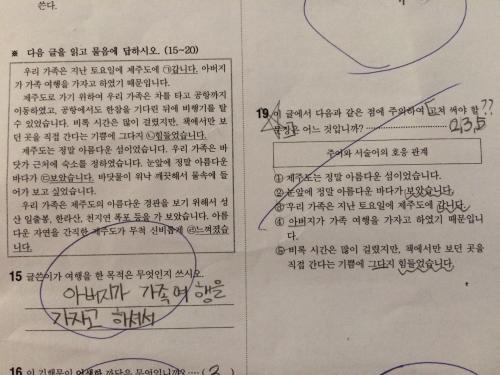 쓴다.
※ 다음 글을 읽고 물음에 답하시오. (15~20)
우리 가족은 지난 토요일에 제주도에 ㉠갑니다. 아버지
가 가족 여행을 가자고 하였기 때문입니다.
제주도로 가기 위하여 우리 가족은 차를 타고 공항까지
이동하였고, 공항에서도 한참을 기다린 뒤에 비행기를 탈
수 있었습니다. 비록 시간은 많이 걸렸지만, 책에서만 보
던 곳을 직접 간다는 기쁨에 그다지 ㉡힘들었습니다.
제주도는 정말 아름다운 섬이었습니다. 우리 가족은 바
닷가 근처에 숙소를 정하였습니다. 눈앞에 정말 아름다운
바다가 ㉢보았습니다. 바닷물이 워낙 깨끗해서 물속에 들
어가 보고 싶었습니다.
우리 가족은 제주도의 아름다운 경관을 보기 위해서 성
산 일출봉, 한라산, 천지연 폭포 등을 가 보았습니다. 아름
다운 자연을 간직한 제주도가 무척 신비롭게 ㉣느껴졌습
니다.
15 글쓴이가 여행을 한 목적은 무엇인지 쓰시오.
아버지가 가족여행을
가자고 하셔서
16 이 기행문이 어색한 까닭은 무엇입니까?····( 3 )
19 이 글에서 다음과 같은 점에 주의하여 고쳐 써야 할 ??
문장은 어느 것입니까? 2,3,5
주어와 서술어의 호응 관계
① 제주도는 정말 아름다운 섬이었습니다.
② 눈앞에 정말 아름다운 바다가 보았습니다.
③ 우리 가족은 지난 토요일에 제주도에 갑니다.
④ 아버지가 가족 여행을 가자고 하였기 때문입니
다.
⑤ 비록 시간은 많이 걸렸지만, 책에서만 보던 곳을
직접 간다는 기쁨에 그다지 힘들었습니다.